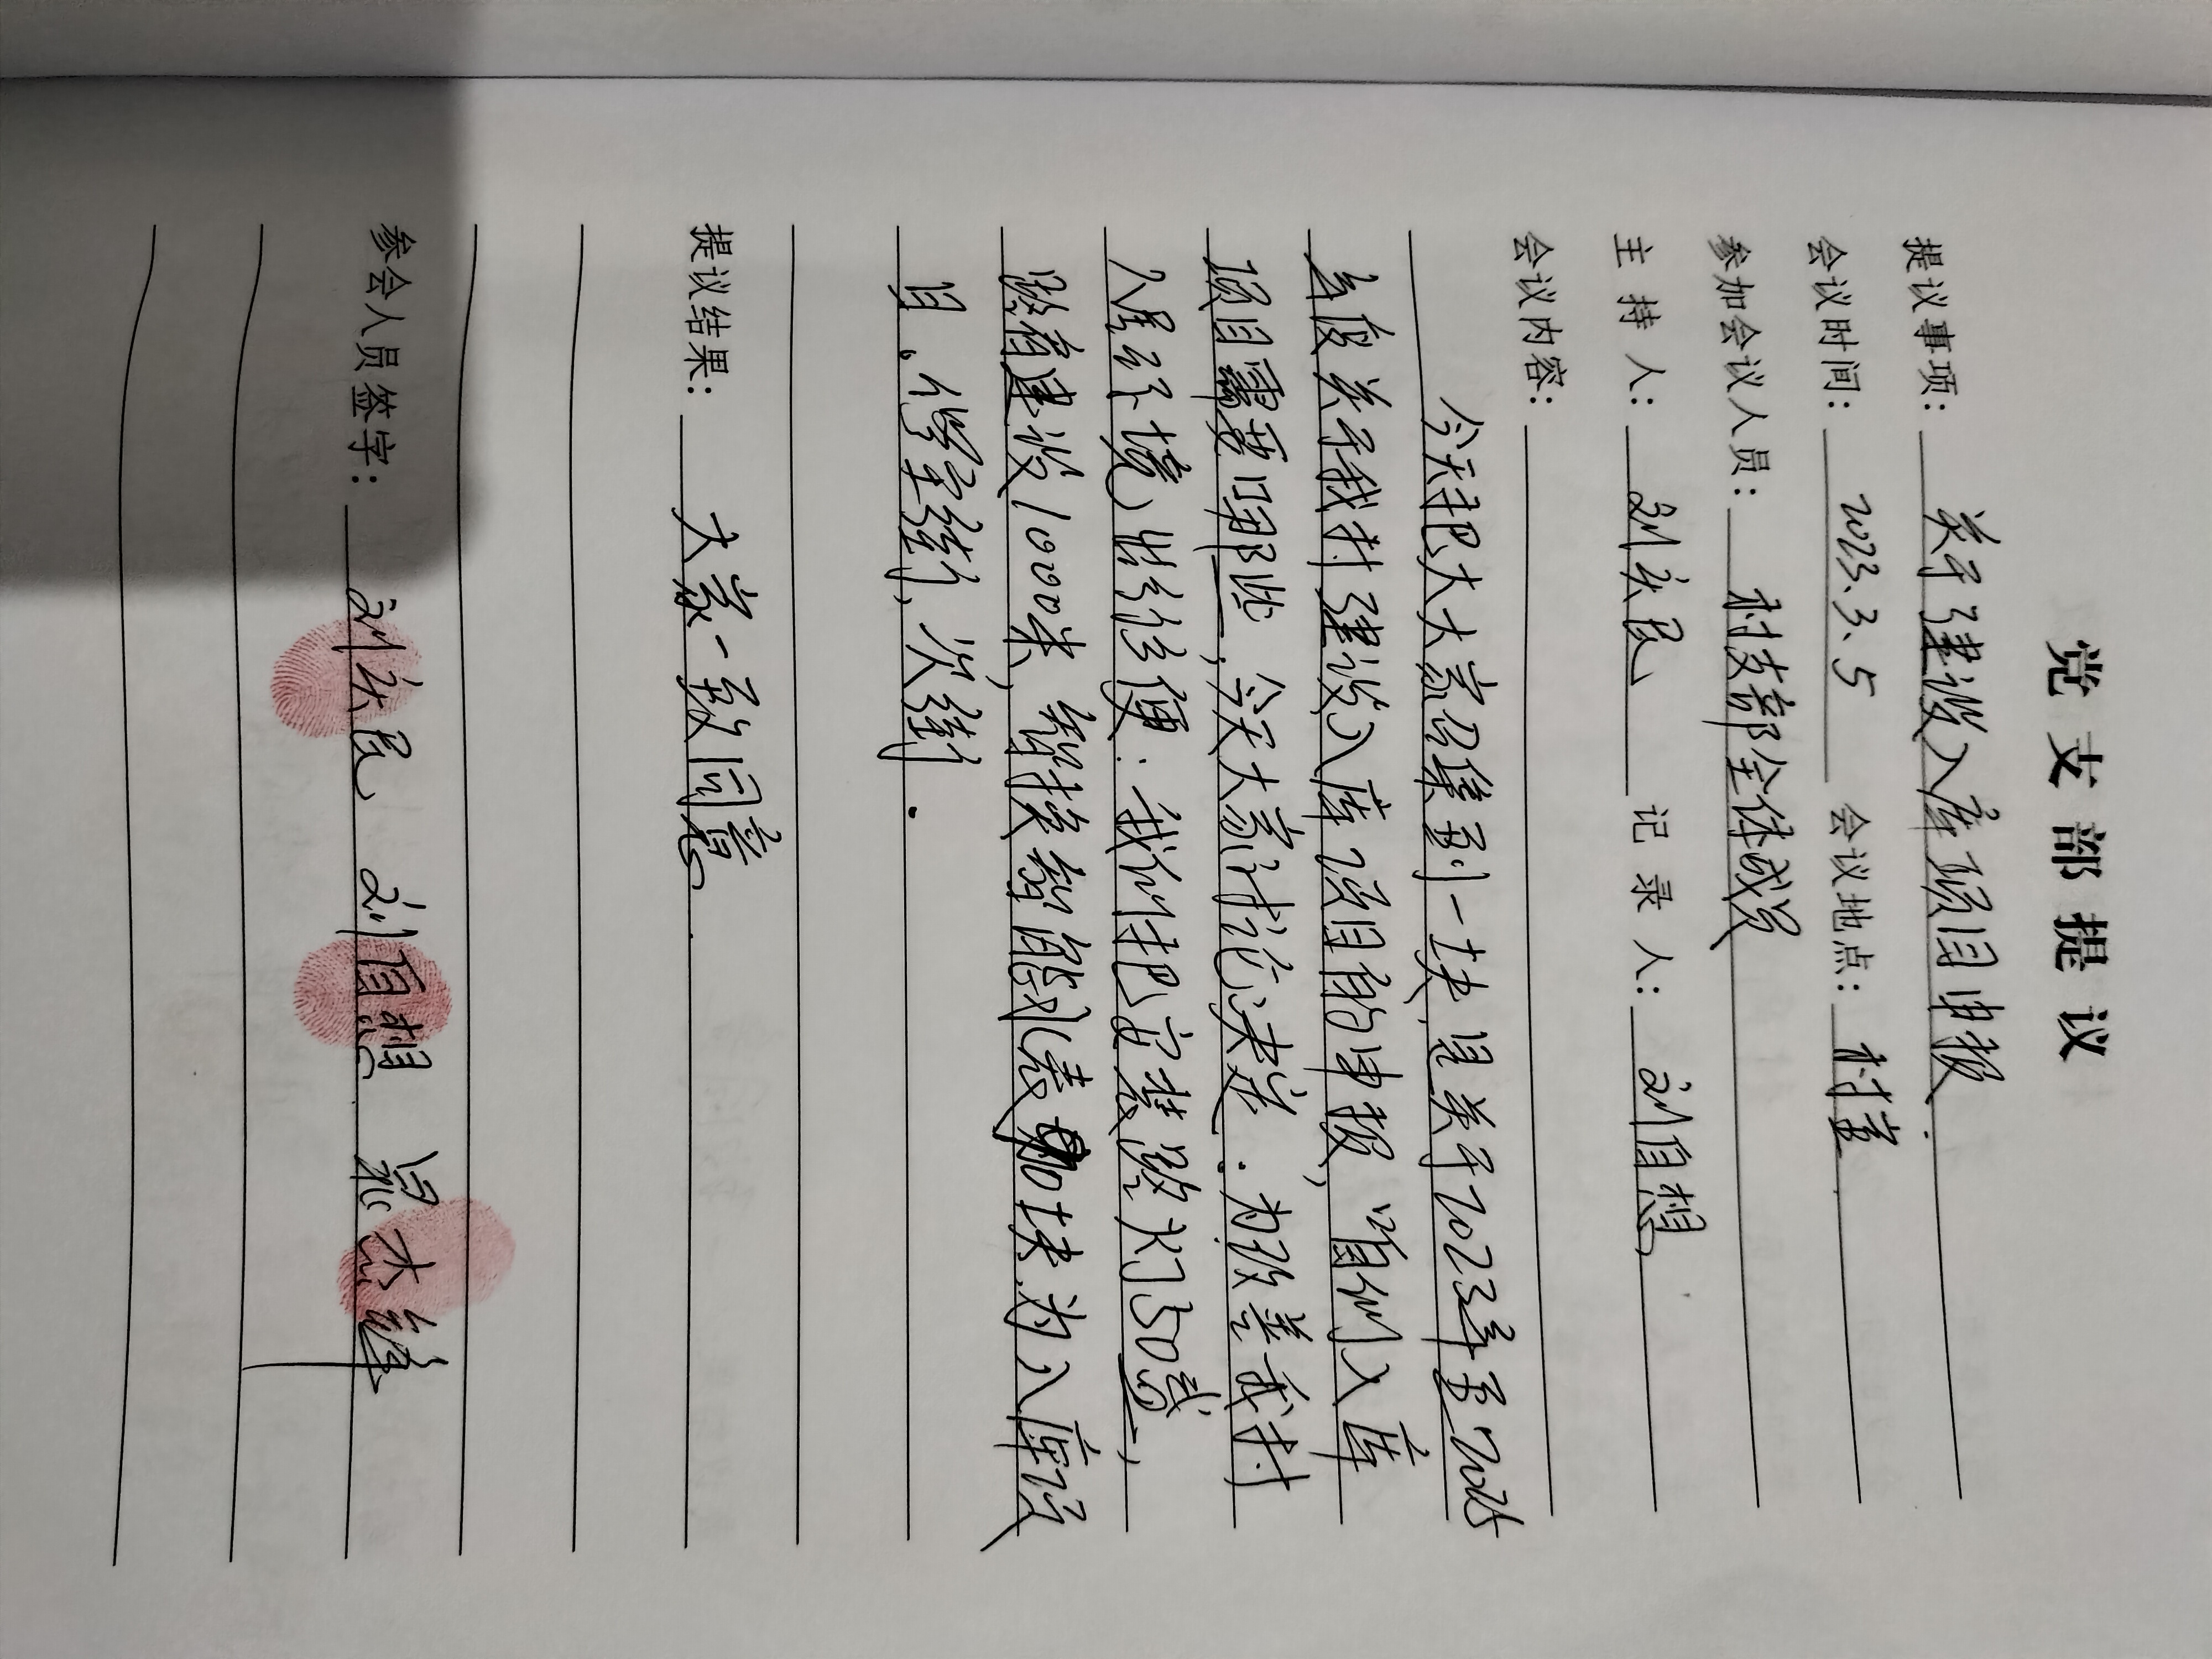 党支部提议
提议事项：关于建设入库项目申报.
会议时间：2023.3.5 会议地点：村室
参加会议人员：村支部全体成员
主持人：刘庆民 记录人：刘自想
会议内容：
今天把大大家召集到一块,是关于2023年至2025
年度关于我村建设入库项目的申报,咱们入库
项目需要哪些,今天大家讨论决定.为改善我村
人居环境,出行方便:我们把安装路灯50盏,
路肩建设1000米,智换智能化表 加块,为入库项
目.修全街,次街.
提议结果：大家一致同意.
参会人员签字：刘庆民 刘自想